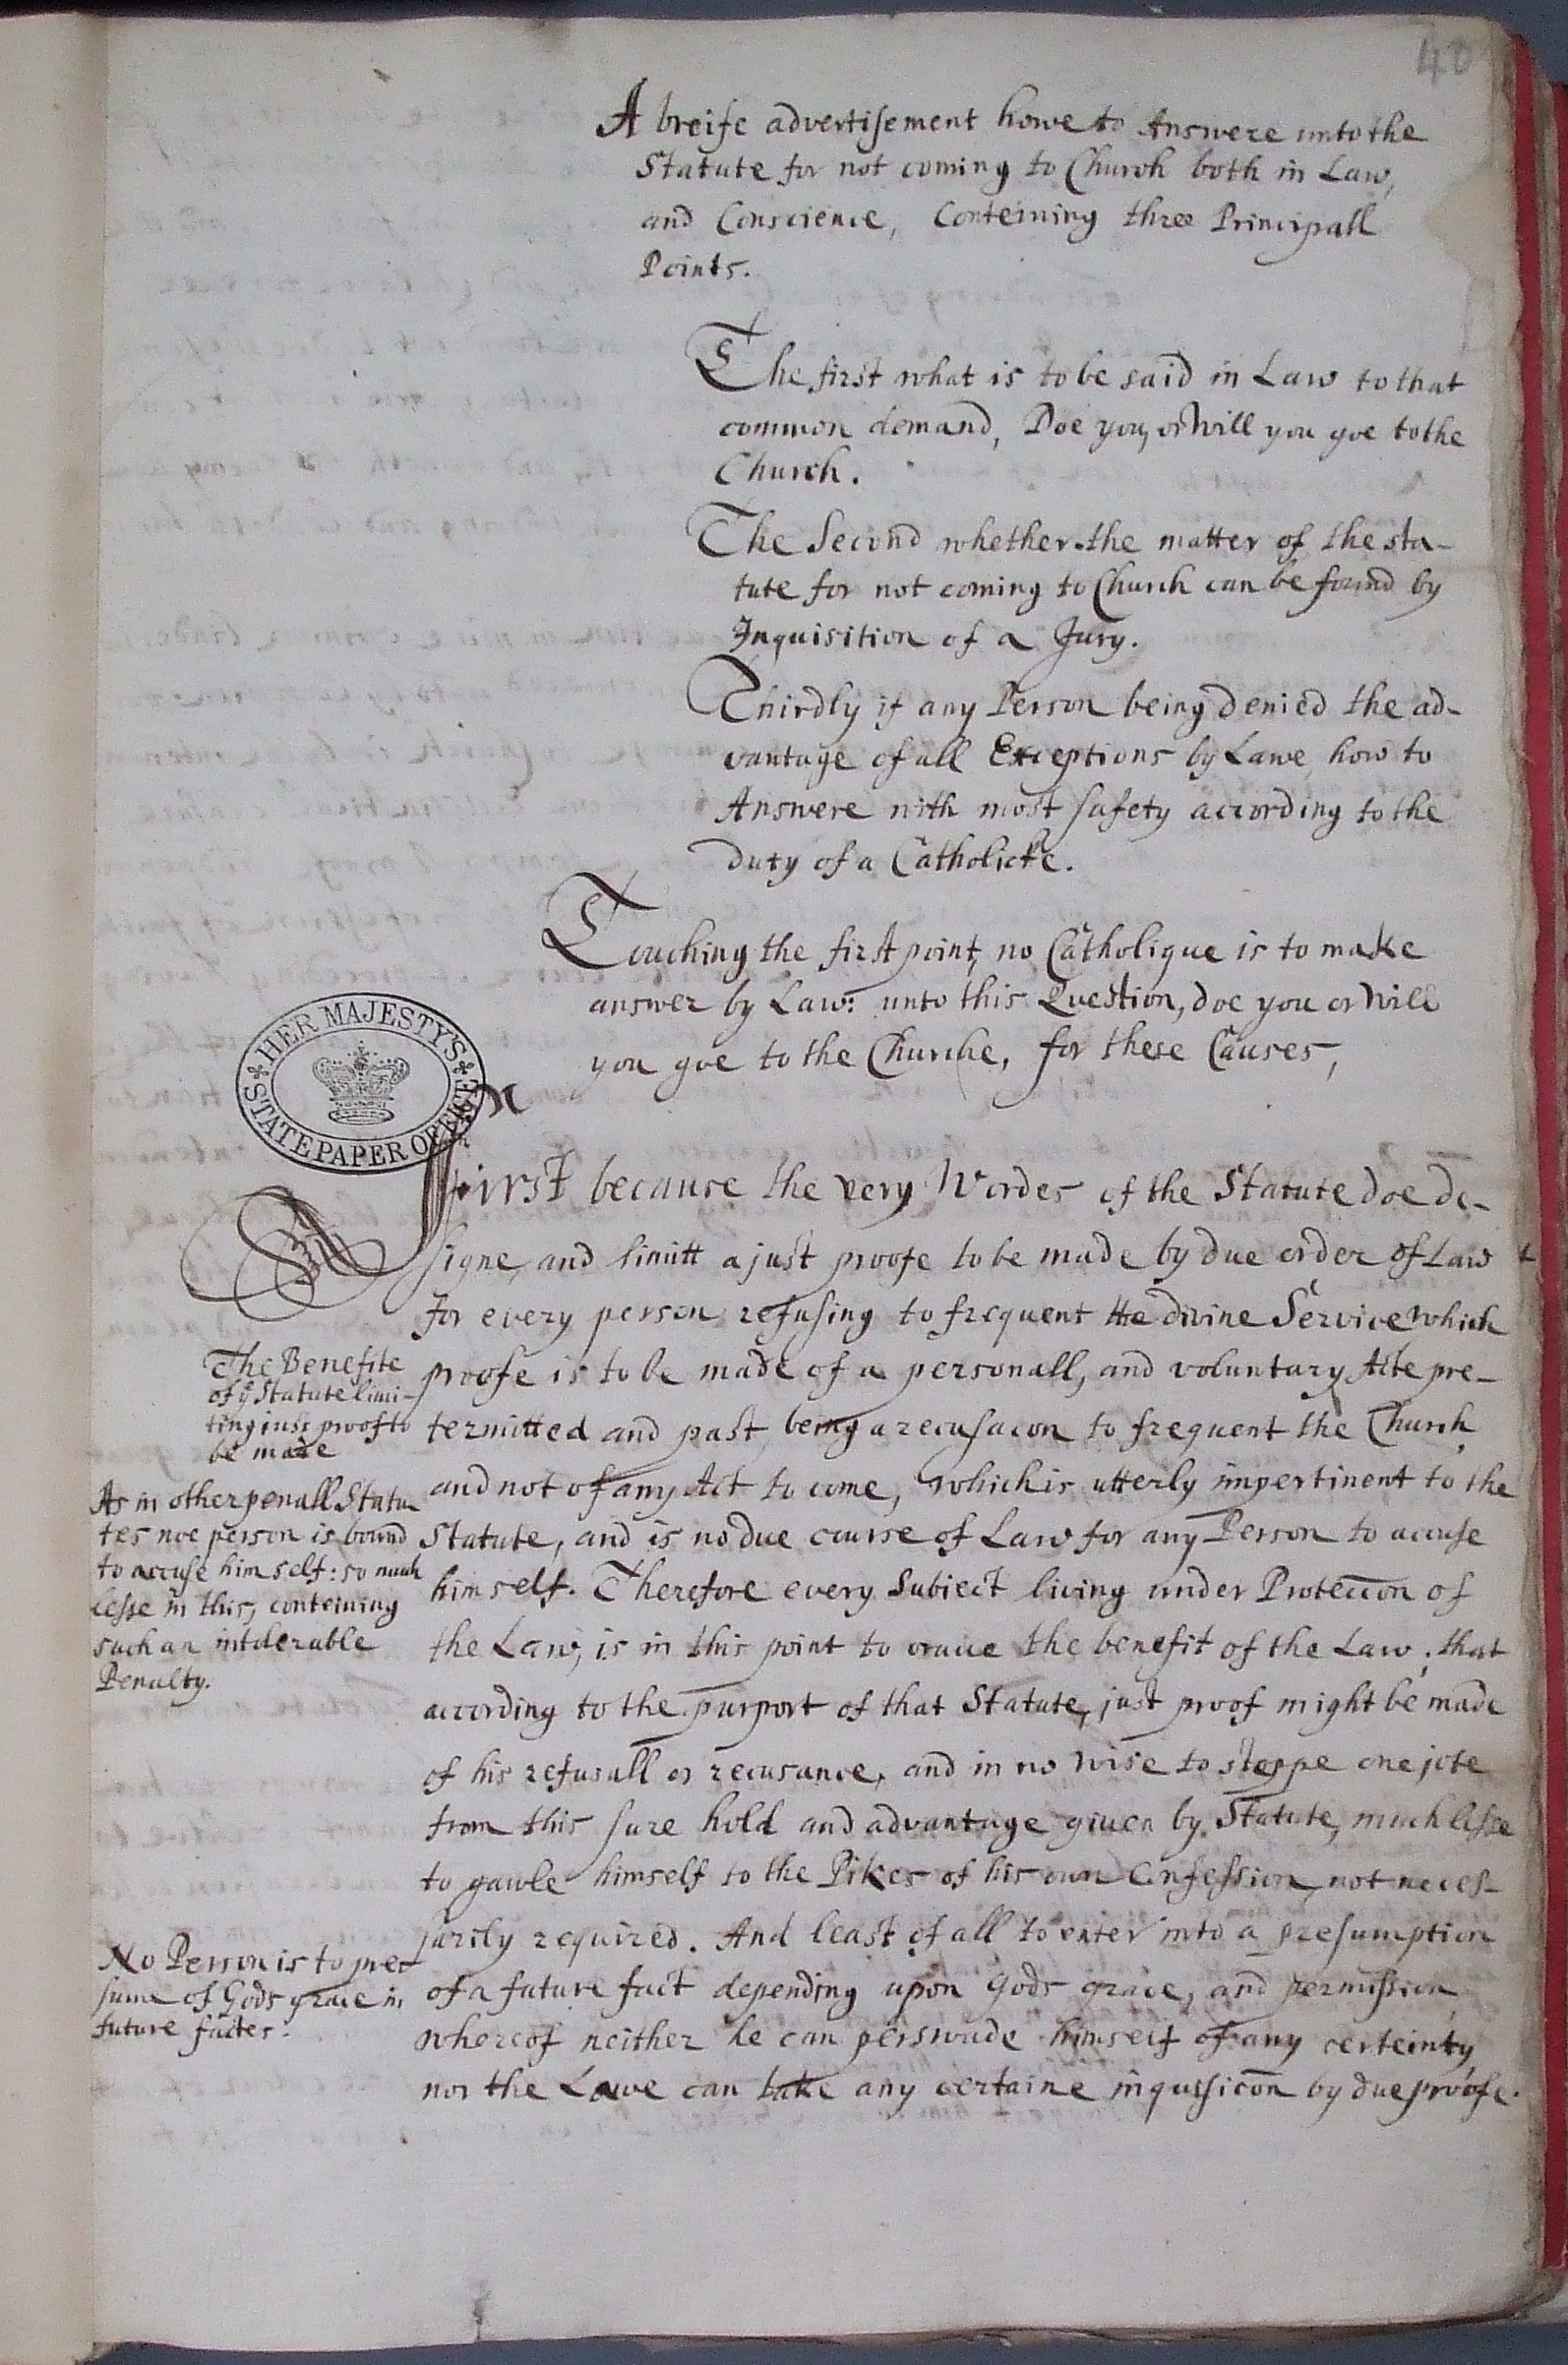 40
A breife advertisement howe to Answere unto the
Statute for not coming to Church both in Law,
and Conscience, Conteining three Principall
Points.
The first what is to be said in Law to that
common demand, Doe you, or Will you goe to the
Church.
The Second whether the matter of the sta-
tute for not coming to Church can be found by
Inquisition of a Jury.
Thirdly if any Person being denied the ad-
vantage of all Exceptions by Lawe how to
Answere with most safety according to the
duty of a Catholicke.
Touching the first point, no Catholique is to make
answer by Law: unto this Question, doe you or Will
you goe to the Churche, for these Causes,
HER MAJESTY'S
STATE PAPER OFFICE
First because the very Wordes of the Statute doe de-
signe, and limitt a just proofe to be made by due order of Law
for every person refusing to frequent the divine Service which
The Benefite
of yͤ Statute limi-
ting iust proof to
be made
proofe is to be made of a personall, and voluntary Acte pre-
termitted and past, being a recusacon to frequent the Church,
and not of any Act to come, which is utterly impertinent to the
As in other penall Statu
tes noe person is bound
to accuse him self: so much
lesse in this, conteining
such an intolerable
Penalty.
Statute, and is no due course of Law for any Person to accuse
him self. Therefore every Subiect living under Proteccon of
the Law, is in this point to craue the benefit of the Law; that
according to the purport of that Statute, just proof might be made
of his refusall or recusance, and in no wise to steppe one jote
from this sure hold and advantage giuen by Statute, much lesse
to gawle himself to the Pikes of his own Confession, not neces-
sarily required. And least of all to enter into a presumption
No Person is to pre-
sume of Gods grace in
future factes.
of a future fact depending upon Gods grace, and permission
whereof neither he can perswade himself of any certeinty,
nor the Lawe can take any certaine inqussicon by due proofe.